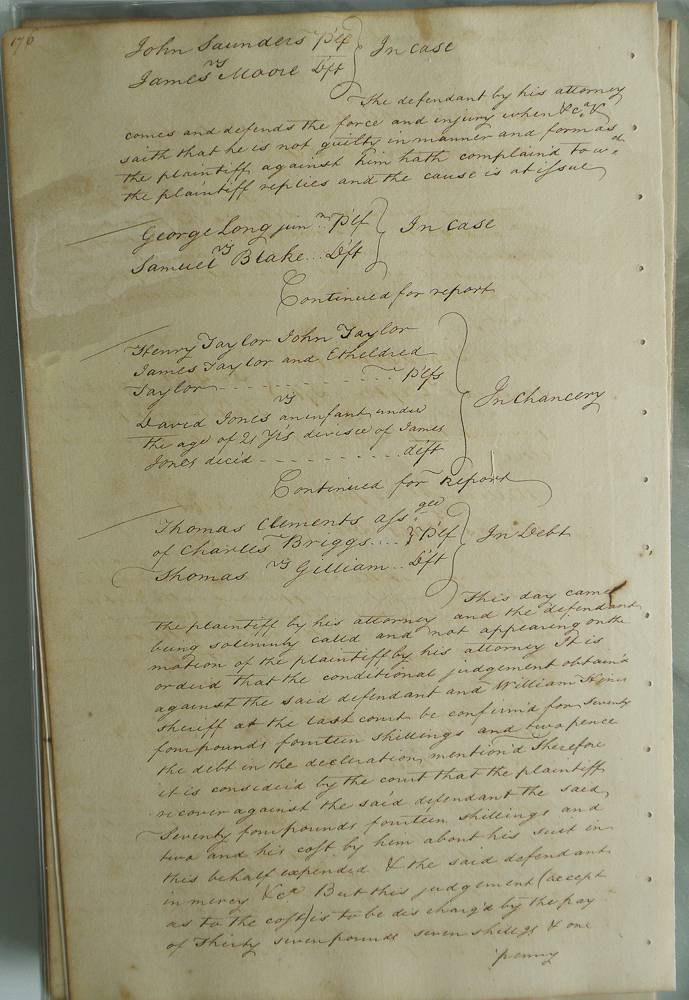 176
John Saunders Plf
vs
James Moore Dft
In case
The defendant by his attorney
comes and defends the force and injury when &c.a &
saith that he is not guilty in manner and form as
the plaintiff against him hath complain'd to w.ch
the plaintiff replies and the cause is at issue
George Long jun.r .. Plf
vs
Samuel Blake ... Dft
In case
Continued for report
Henry Taylor John Taylor
James Taylor and Etheldred
Taylor - - - - - - - - - - - - Plfs
vs
David Jones an infant under
the age of 21 Y'rs devisee of James
Jones dec'd - - - - - - - - - - deft
In Chancery
Continued for report
Thomas Clements ass.gee
of Charles Briggs .... } Plf
vs
Thomas Gilliam .. Dft
In Debt
This day came
the plaintiff by his attorney and the defendant
being solemnly call'd and not appearing on the
motion of the plaintiff by his attorney It is
order'd that the conditional judgement obtain'd
against the said defendant and William
sheriff at the last court be confirm'd for Seventy
four pounds fourteen shillings and two pence
the debt in the decleration mention'd Therefore
it is consider'd by the court that the plaintiff
recover against the said defendant the said
Seventy four pounds fourteen shillings and
two and his cost by him about his suit in
this behalf expended & the said defendant
in mercy &c.a But this judgement (accept
as to the cost) is to be discharg'd by the pay
of Thirty seven pounds seven shillgs & one
penny